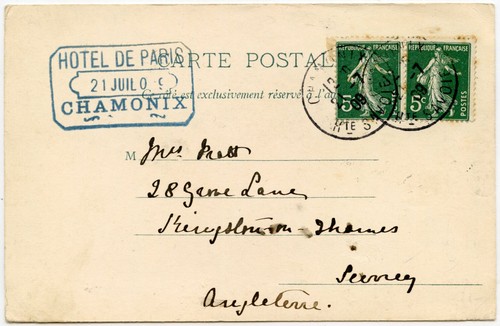 HOTEL DE PARIS
21 JUIL 09
CHAMONIX
CARTE POSTALE
Ce côté est exclusivement réservé à l'ad
REPUBLIQUE FRANÇAISE
5c
POSTES
REPUBLIQUE FRANÇAISE
5c
POSTES
HTE SAVOIE
09
HTE SAVOIE
09
M Mrs Pratt
28 Lane
Kingston-on-Thames
Surrey
Angleterre.